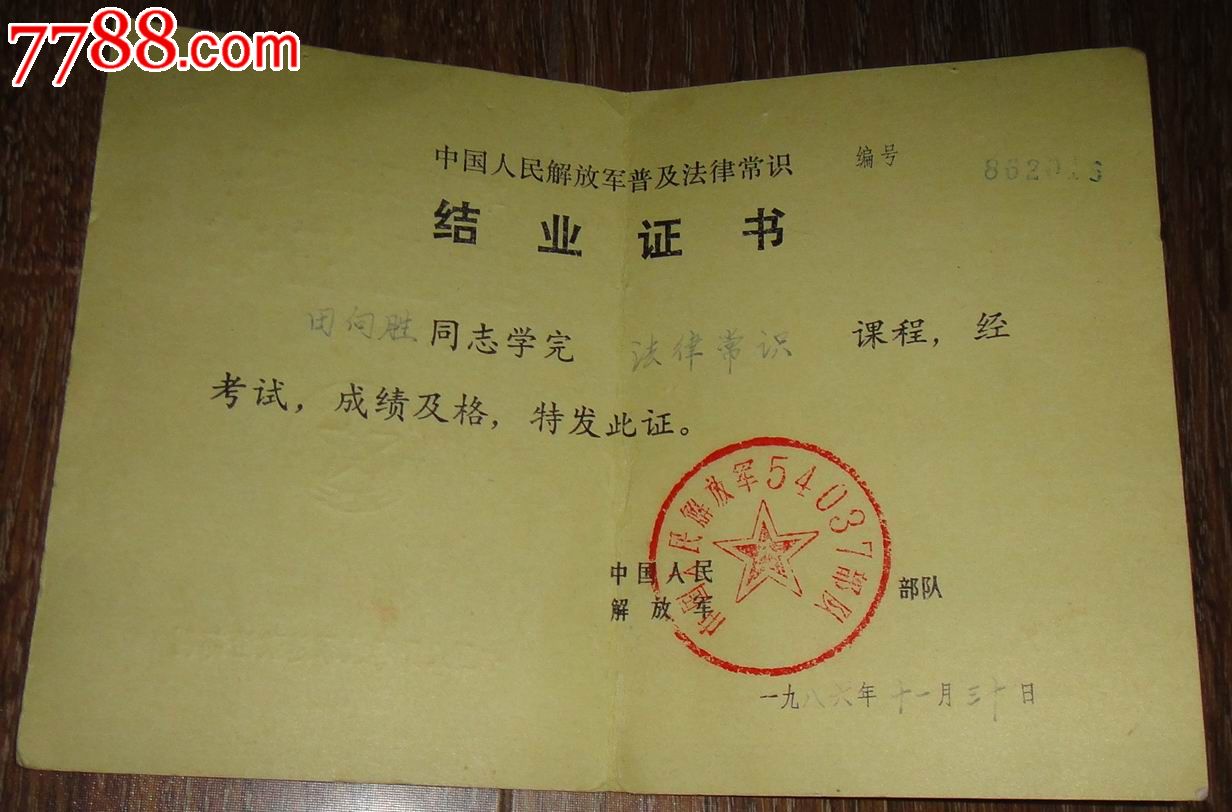 7788.com
中国人民解放军普及法律常识
编号
结业证书
田向胜同志学完 法律常识 课程，经
考试，成绩及格，特发此证。
中国人民解放军54037部队
中国人民
解放军 部队
一九八六年十一月三十日